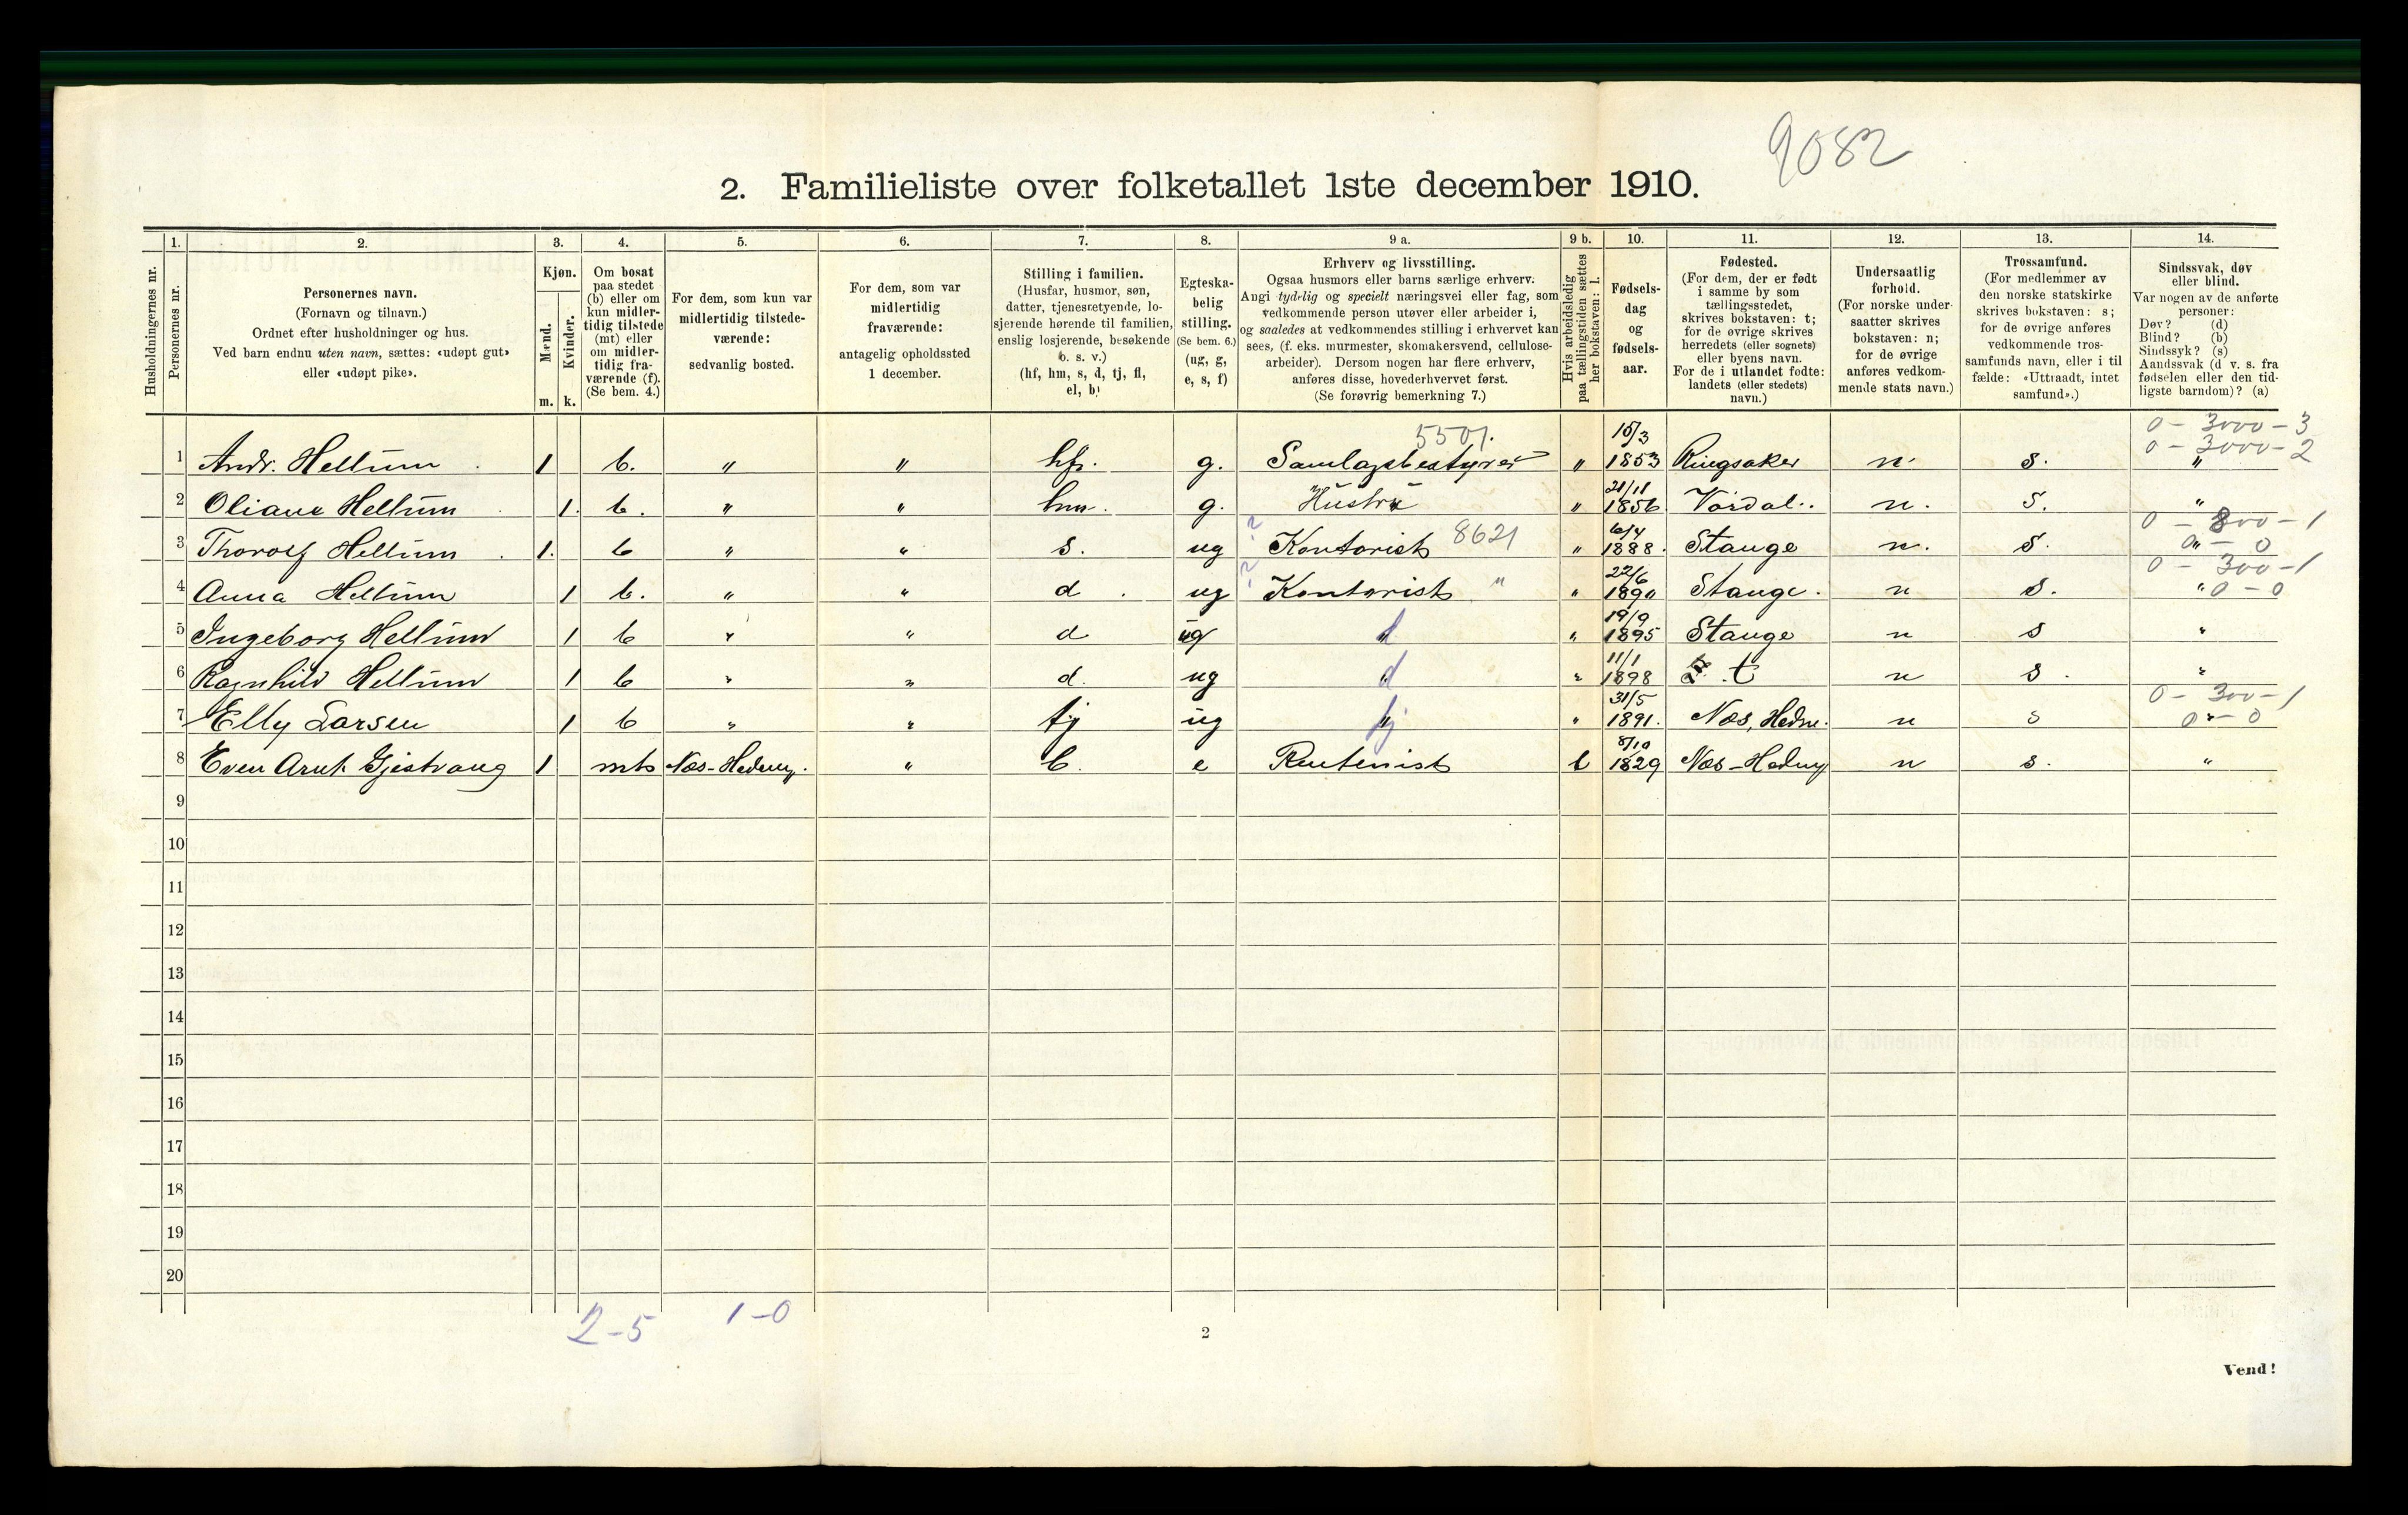 9082
2. Familieliste over folketallet 1ste december 1910.
1. 2. 3. 4. 5. 6. 7. 8. 9 a. 9 b. 10. 11. 12. 13. 14.
Husholdningernes nr.
Personernes nr.
Personernes navn.
(Fornavn og tilnavn.)
Ordnet efter husholdninger og hus.
Ved barn endnu uten navn, sættes: «udøpt gut»
eller «udøpt pike».
Kjøn.
Mænd.
m.
Kvinder.
k.
Om bosat
paa stedet
(b) eller om
kun midler-
tidig tilstede
(mt) eller
om midler-
tidig fra-
værende (f).
(Se bem. 4.)
For dem, som kun var
midlertidig tilstede-
værende:
sedvanlig bosted.
For dem, som var
midlertidig
fraværende:
antagelig opholdssted
1 december.
Stilling i familien.
(Husfar, husmor, søn,
datter, tjenestetyende, lo-
sjerende hørende til familien,
enslig losjerende, besøkende
o. s. v.)
(hf, hm, s, d, tj, fl,
el, b)
Egteska-
belig
stilling.
(Se bem. 6.)
(ug, g,
e, s, f)
Erhverv og livsstilling.
Ogsaa husmors eller barns særlige erhverv.
Angi tydelig og specielt næringsvei eller fag, som
vedkommende person utøver eller arbeider i,
og saaledes at vedkommendes stilling i erhvervet kan
sees, (f. eks. murmester, skomakersvend, cellulose-
arbeider). Dersom nogen har flere erhverv,
anføres disse, hovederhvervet først.
(Se forøvrig bemerkning 7.)
Hvis arbeidsledig
paa tællingstiden sættes
her bokstaven: l.
Fødsels-
dag
og
fødsels-
aar.
Fødested.
(For dem, der er født
i samme by som
tællingsstedet,
skrives bokstaven: t;
for de øvrige skrives
herredets (eller sognets)
eller byens navn.
For de i utlandet fødte:
landets (eller stedets)
navn.)
Undersaatlig
forhold.
(For norske under-
saatter skrives
bokstaven: n;
for de øvrige
anføres vedkom-
mende stats navn.)
Trossamfund.
(For medlemmer av
den norske statskirke
skrives bokstaven: s;
for de øvrige anføres
vedkommende tros-
samfunds navn, eller i til
fælde: «Uttraadt, intet
samfund».)
Sindssvak, døv
eller blind.
Var nogen av de anførte
personer:
Døv? (d)
Blind? (b)
Sindssyk? (s)
Aandssvak (d v. s. fra
fødselen eller den tid-
ligste barndom)? (a)
5501. 15/3 0 - 3000 - 3
0 - 3000 - 2
1 Andr. Hellum 1 b. " " hf. g. Samlagsbestyrer " 1853 Ringsaker n. s. "
21/11
2 Oliane Hellum 1. b. " " hm. g. Hustru " 1856 Vardal. n. s. "
6/4 0 - 800 - 1
3 Thorolf Hellum 1. b " " s. ug ? Kontorist 8621 " 1888. Stange n. s. 0 " - 0
22/6 0 - 300 - 1
4 Anna Hellum 1 b. " " d. ug ? Kontorist " " 1890 Stange. n s. " 0 - 0
19/9
5 Ingeborg Hellum 1 b " " d ug d " 1895 Stange n s "
11/1
6 Ragnhild Hellum 1 b " " d. ug d " 1898 t n s. "
31/5 0 - 300 - 1
7 Elly Larsen 1 b " " tj ug tj " 1891. Næs, Hedm. n s 0 " - 0
8/10
8 Even Arnt Gjestvang 1 mt Næs-Hedm. " b. e Rentenist l 1829 Næs-Hedm n s. "
9
10
11
12
13
14
15
16
17
18
19
20
2-5 1-0
2
Vend!